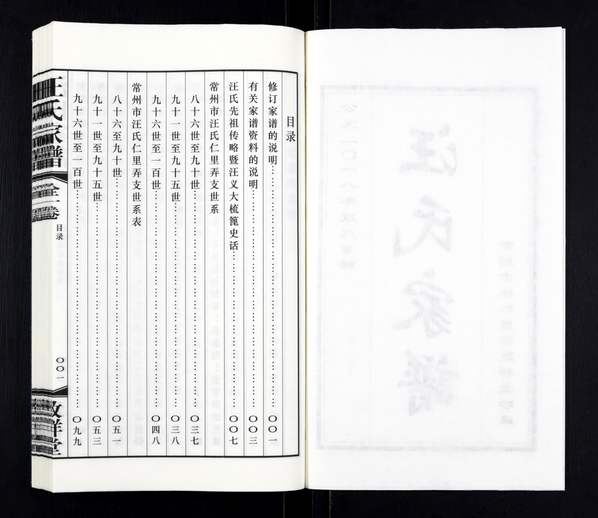 目录
修订家谱的说明……〇〇一
有关家谱资料的说明……〇〇三
汪氏先祖传略暨汪义大梳篦史话……〇〇七
常州市汪氏仁里弄支世系
八十六世至九十世……〇三七
九十一世至九十五世……〇三八
九十六世至一百世……〇四八
常州市汪氏仁里弄支世系表
八十六至九十世……〇五一
九十一世至九十五世……〇五三
九十六世至一百世……〇九九
汪氏家谱
全一卷
目录
〇〇一
敦祥堂
汪氏家谱